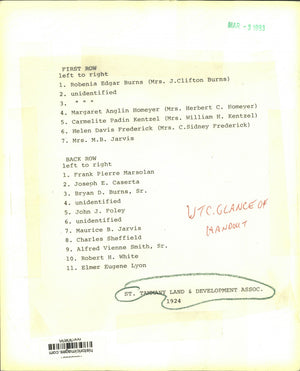 MAR -3 1993
FIRST ROW
left to right
1. Robenia Edgar Burns (Mrs. J.Clifton Burns)
2. unidentified
3. " " "
4. Margaret Anglin Homeyer (Mrs. Herbert C. Homeyer)
5. Carmelite Padin Kentzel (Mrs. William H. Kentzel)
6. Helen Davis Frederick (Mrs. C.Sidney Frederick)
7. Mrs. M.B. Jarvis
BACK ROW
left to right
1. Frank Pierre Marsolan
2. Joseph E. Caserta
3. Bryan D. Burns, Sr.
4. unidentified
5. John J. Foley
6. unidentified
7. Maurice B. Jarvis
8. Charles Sheffield
9. Alfred Vienne Smith, Sr.
10. Robert H. White
11. Elmer Eugene Lyon
WTC. GLANCE OF
HANDOUT
ST. TAMMANY LAND & DEVELOPMENT ASSOC.
1924
historicimages.com